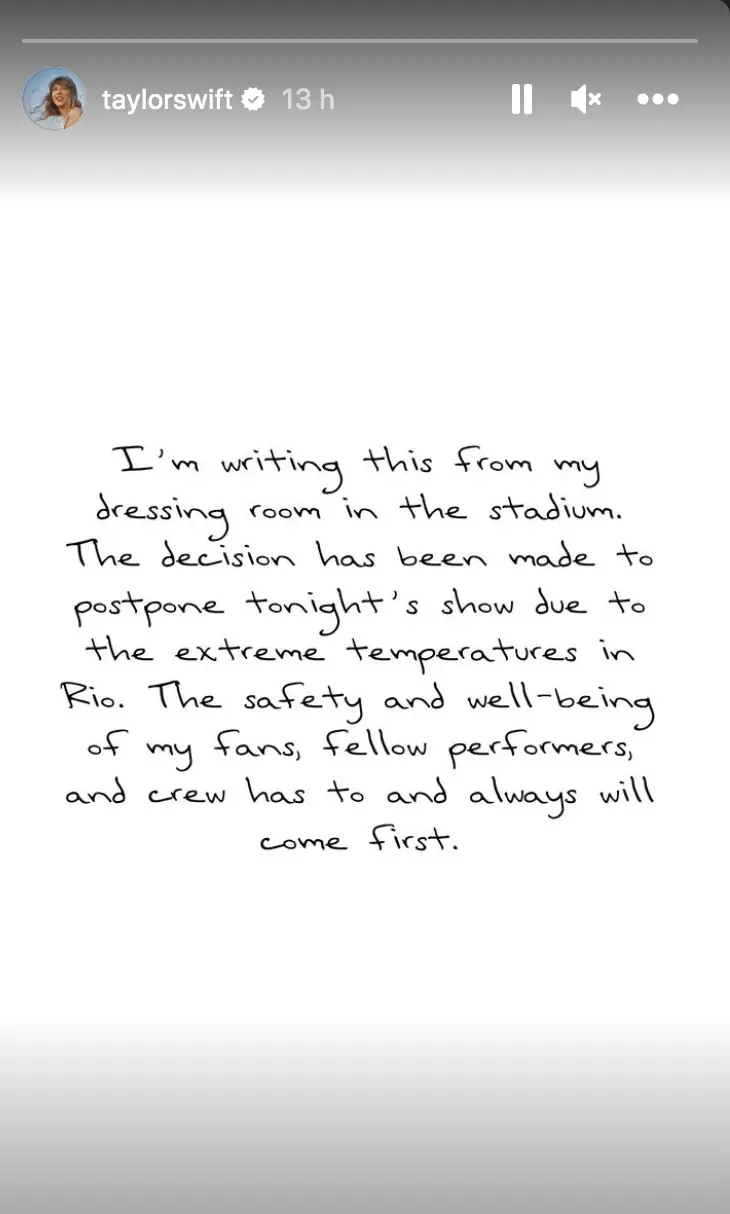 taylorswift 13 h
I'm writing this from my
dressing room in the stadium.
The decision has been made to
postpone tonight's show due to
the extreme temperatures in
Rio. The safety and well-being
of my fans, fellow performers,
and crew has to and always will
come first.